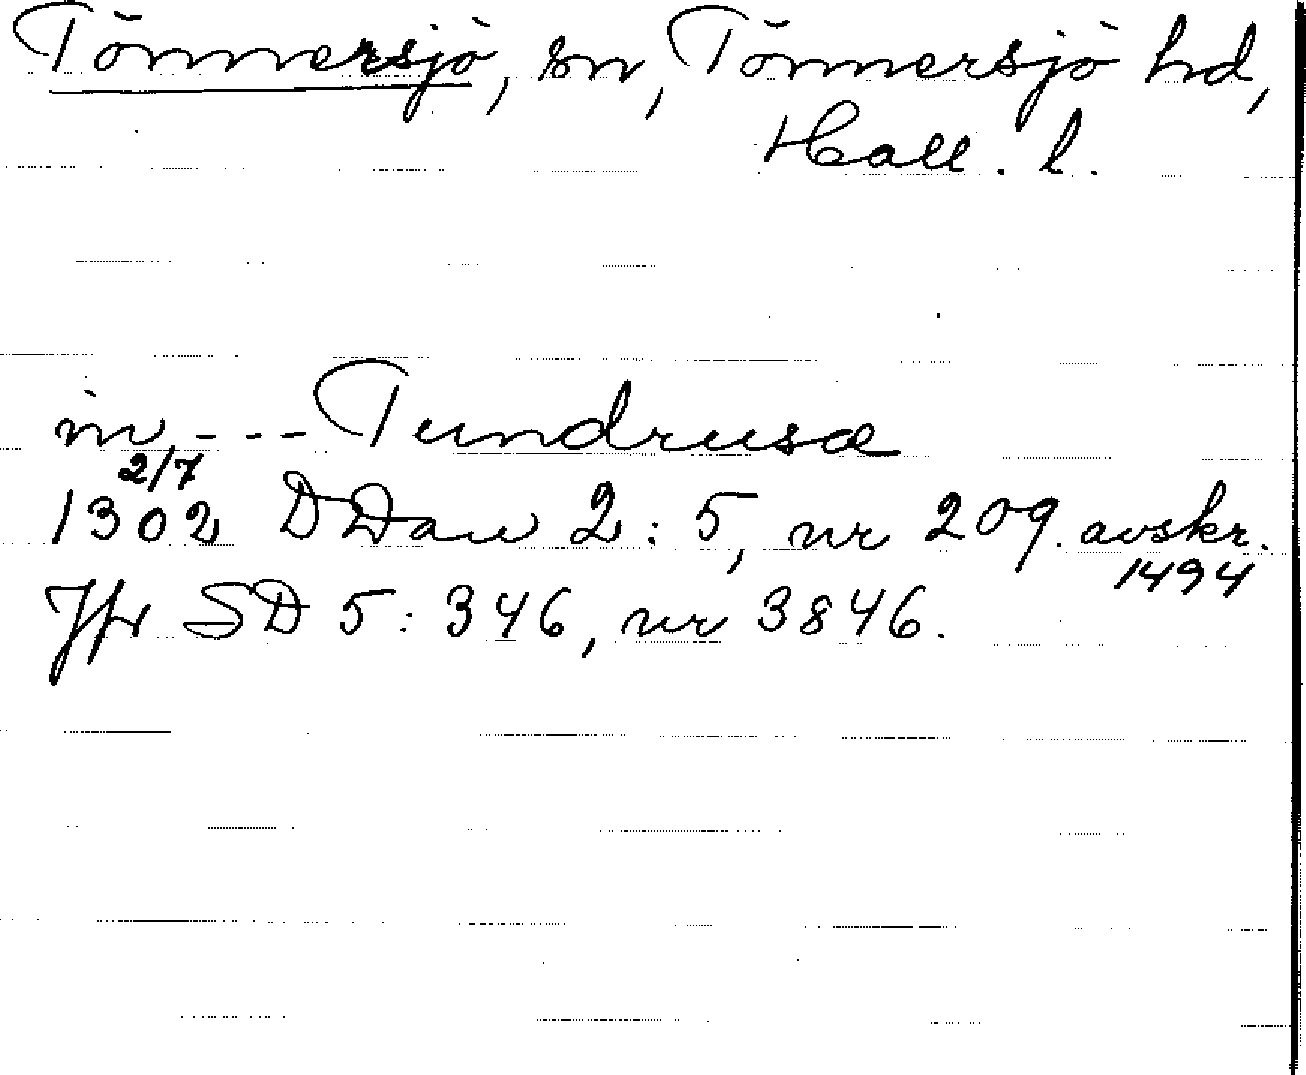 Tönnersjö, sn, Tönnersjö hd,
Hall. l.
in - - - Tundrusæ
2/7
1302 DDan 2:5, nr 209. avskr.
1494
Jfr SD 5:346, nr 3846.